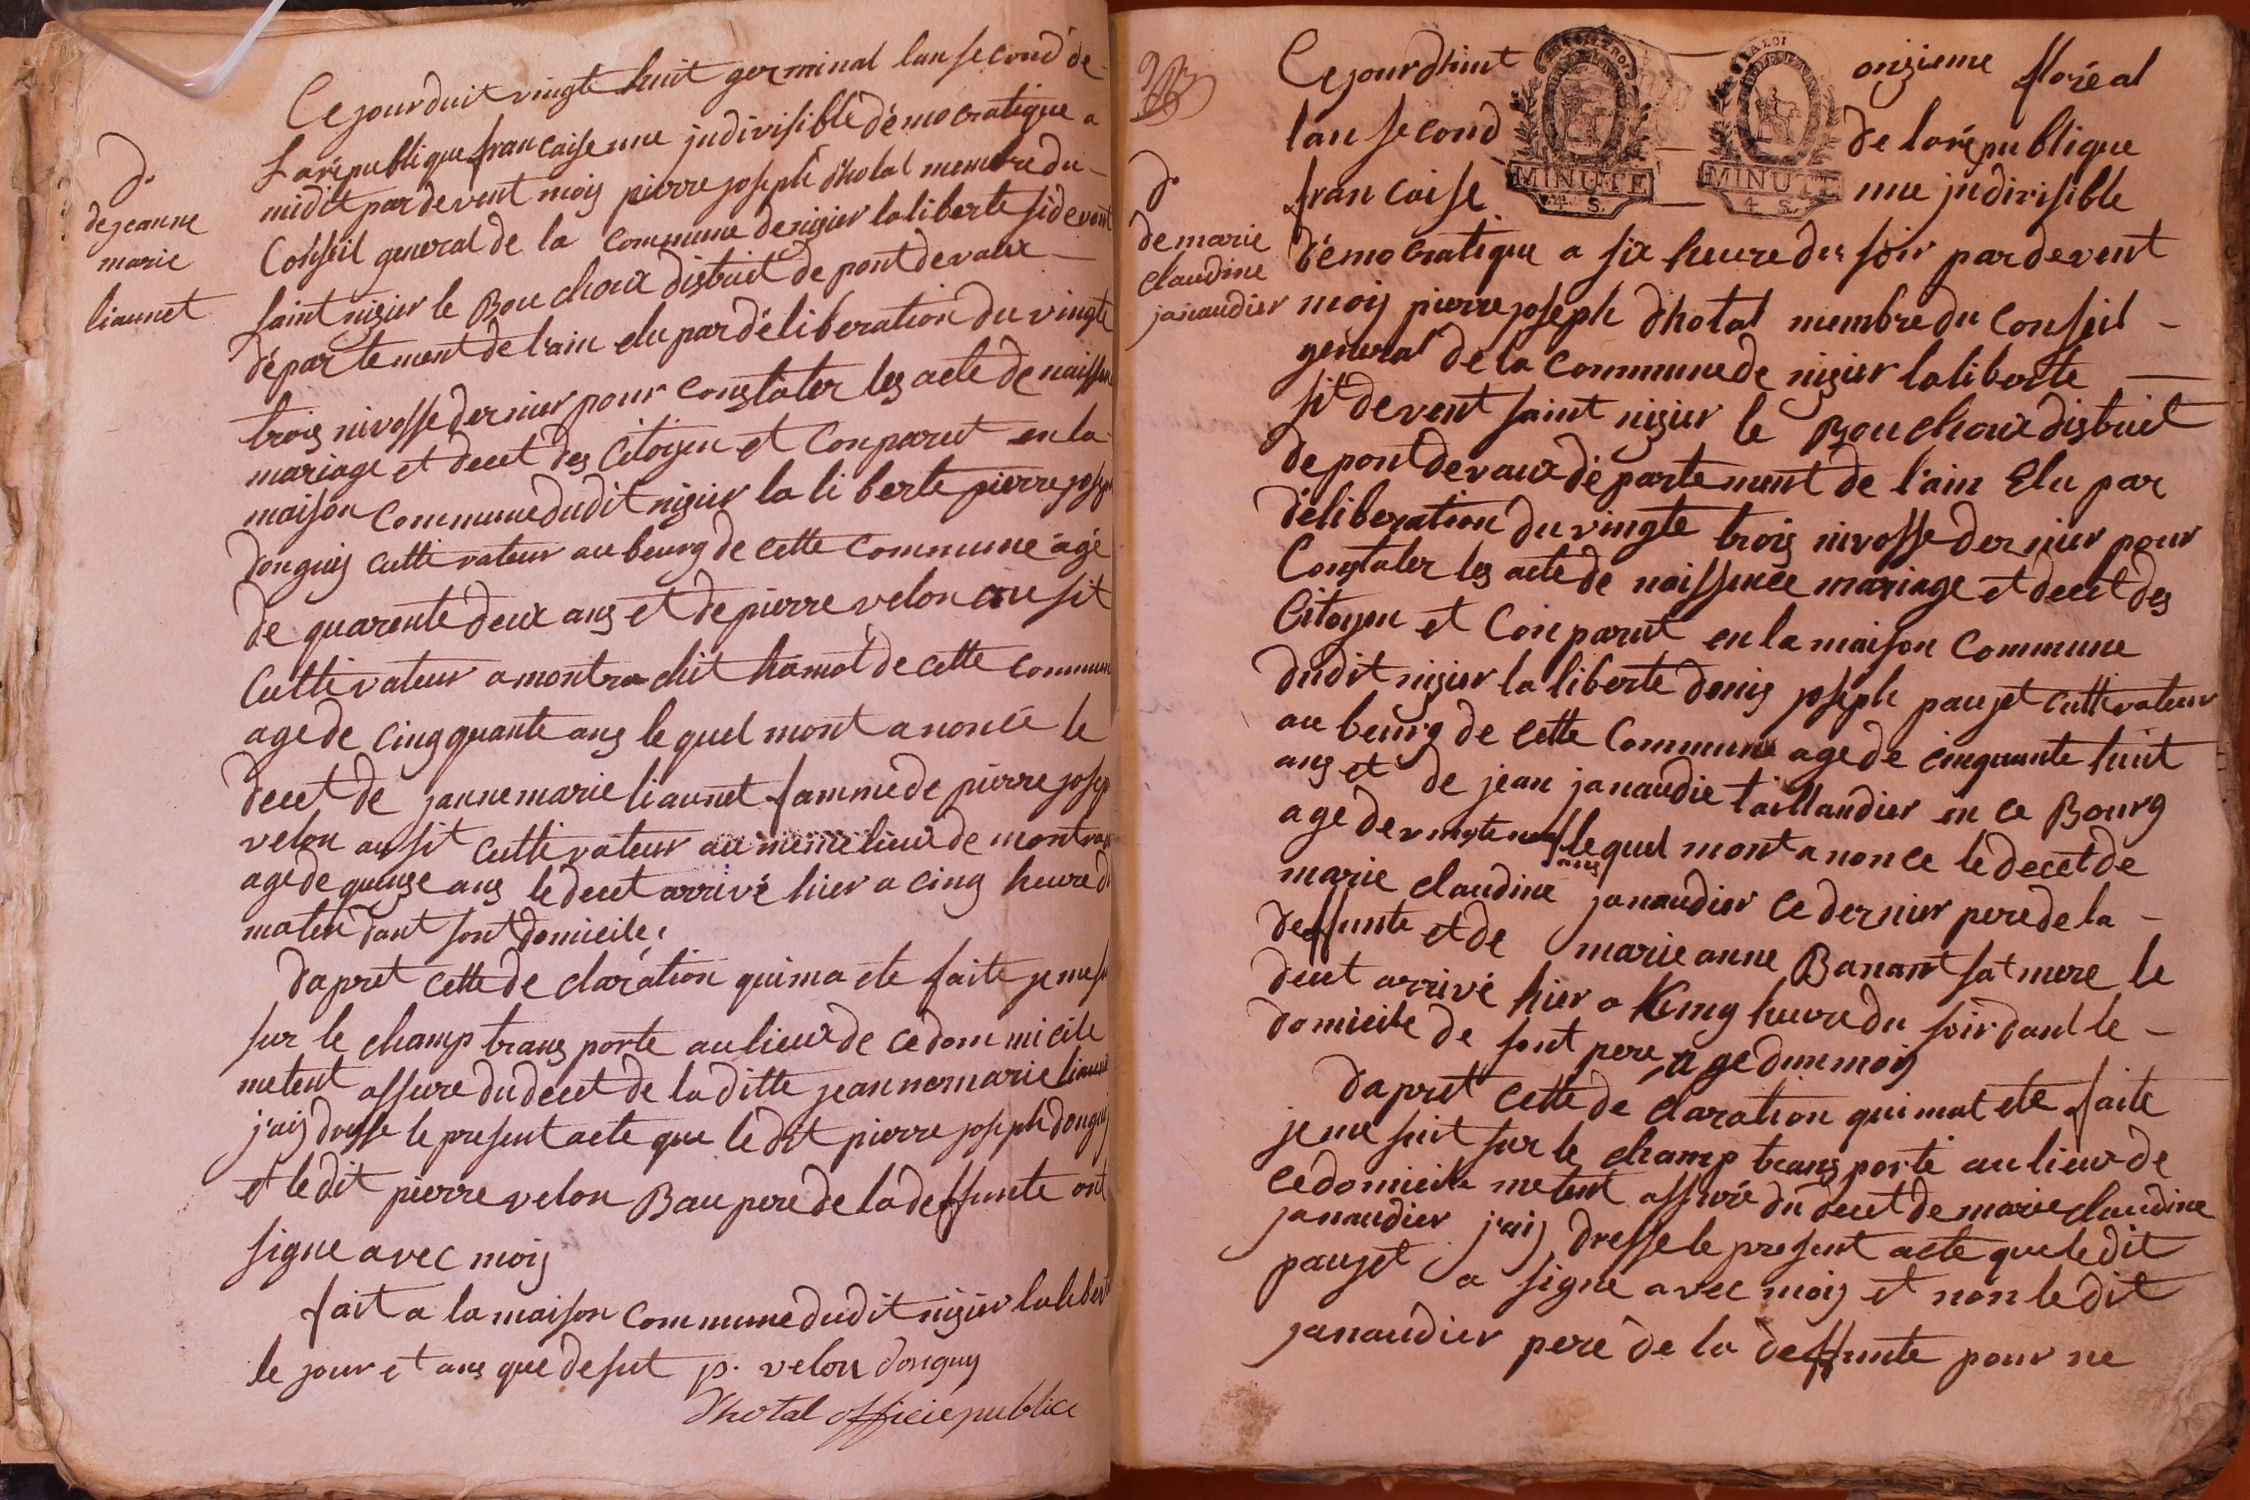 d.
de jeanne
marie
liaunet
Ce jourduit vingte huit germinal lan second de
La republique francaise une jndivisible démocratique a
midit par devent mois pierre joseph dhotal membre du
Conseil general de la commune de nizier la liberte sidevent
saint nizier le Bouchoux distruit de pontdevaux
département de l'ain elu par déliberation du vingte
trois nivosse dernier pour constater les acte de naissen
mariage et decet des Citoyen et Conparut en la
maison commune dudit nizier la liberte pierre josep
donguis cultivateur au beurg de cette commune agé
de quarente deux ans et de pierre velon ausit
Cultivateur a montrachit hamot de cette commune
age de cinqquante ans lequel mont anoncé le
decet de jannemarie liaunet famme de pierre josep
velon ausit cultivateur au meme lieux de montra
age de quinze ans le decet arrivé hier a cinq heure d
maten dant sont domicile.
dapret cette declaration qui ma ete faite je me s
sur le champ transporte au lieux de ce dommicile
metent assure du decet de la ditte jeannemarie liaunet
j'ais dresse le present acte que ledit pierre joseph dongui
et ledit pierre velon Bau pere de la deffunte ont
signe avec mois
fait a la maison commune dudit nizier laliberte
le jour et ans que desut p. velon donguy
Dhotal officie publice
d.
de marie
claudine
janaudier
Cejourdhuit onzieme floréal
lan second de la république
francaise une jndivisible
MINUTE
4 S.
MINUTE
4 S.
démocratique a six heure du soir par devent
mois pierre joseph dhotal membre du conseil
general de la commune de nizier laliberte
sit devent saint nizier le Bouchoux distruit
de pontdevaux département de l'ain Elu par
déliberation du vingte trois nivosse dernier pour
Constater les acte de naissence mariage et decet des
Citoyen et Conparut en la maison commune
dudit nizier la liberte denis joseph paujet cultivateur
au beurg de cette commune age de cinquante huit
ans et de jean janaudie taillandier en ce Bourg
age de vingte neuf ans lequel mont anonce le decet de
marie claudine janaudier ce dernier pere de la
deffunte et de marieanne Banant sat mere le
decet arrivé hier a cinq heure du soir dant le
domicile de sont pere age dun mois
dapret cette déclaration qui mat eté faite
je me suit sur le champ transporté au lieux de
ce domicile metent assuré du decet de marie claudine
janaudier j'ais dresse le present acte que ledit
paujet a signe avec mois et non ledit
janaudier pere de la deffunte pour ne